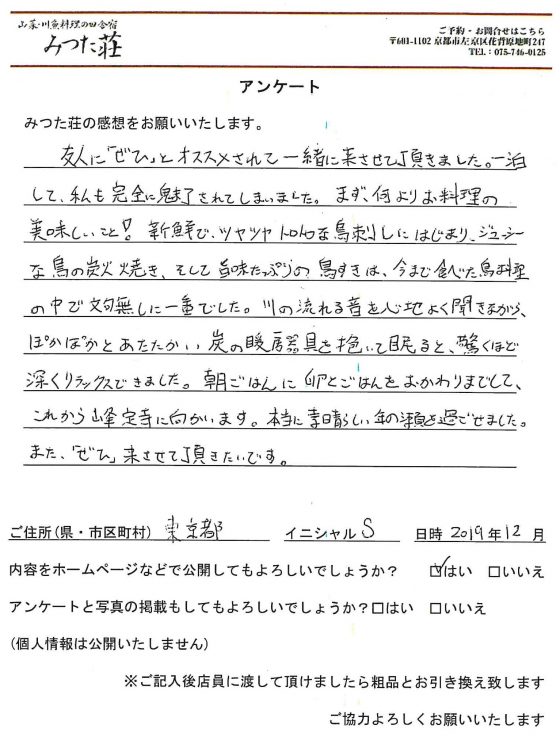 山菜・川魚料理の田舎宿
みつた荘
ご予約・お問合せはこちら
〒601-1102 京都市左京区花背原地町247
TEL：075-746-0125
アンケート
みつた荘の感想をお願いいたします。
友人に「ぜひ」とオススメされて一緒に来させて頂きました。一泊
して、私も完全に魅了されてしまいました。まず、何よりお料理の
美味しいこと！新鮮で、ツヤツヤトロトロな鳥刺しにはじまり、ジューシー
な鳥の炭火焼き、そして旨味たっぷりの鳥すきは、今まで食べた鳥料理
の中で文句無しに一番でした。川の流れる音を心地よく聞きながら、
ぽかぽかとあたたかい炭の暖房器具を抱いて眠ると、驚くほど
深くリラックスできました。朝ごはんに卵とごはんをおかわりまでして、
これから峰定寺に向かいます。本当に素晴らしい年の瀬を過ごせました。
また、「ぜひ」来させて頂きたいです。
ご住所(県・市区町村) 東京都 イニシャル S 日時 2019年12月
内容をホームページなどで公開してもよろしいでしょうか？ ☑はい □いいえ
アンケートと写真の掲載もしてもよろしいでしょうか？□はい □いいえ
(個人情報は公開いたしません)
※ご記入後店員に渡して頂けましたら粗品とお引き換え致します
ご協力よろしくお願いいたします